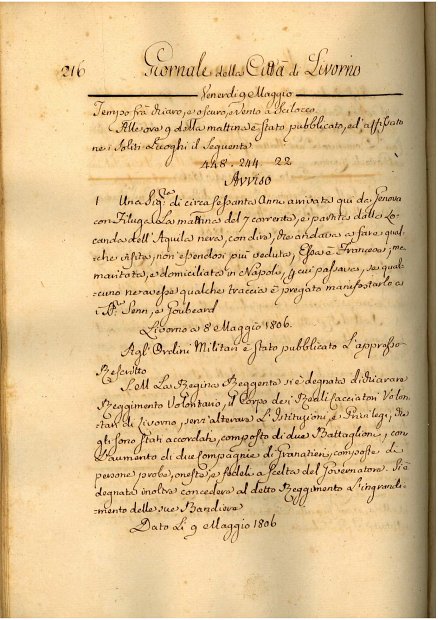 216 Giornale della Città di Livorno
Venerdi 9 Maggio
Tempo frà chiaro, e oscuro, e Vento a Scilocco
Alle ore 9 della mattina è stato pubblicato, ed affissato
ne i soliti Luoghi il Seguente
448. 244. 22
Avviso
Una Sig.ra di circa sessanta Anni arrivata qui da Genova
con Filuga La mattina del 7 corrente, e partita dalla Lo-
canda dell'Aquila nera, con dire, che andava a fare qual-
che visita, non essendosi più veduta, Essa è Francese, ma
maritata, e domiciliata in Napoli, p cui passava, se qual-
cuno ne avesse qualche traccia è pregato manifestarlo a
i SS.ri Senn, e Goubeard
Livorno a 8 Maggio 1806.
Agl'Ordini Militari è stato pubblicato L'appresso
Rescritto
S. M. La Regina Reggente si è degnata dichiarare
Reggimento Volontario, il Corpo dei Reali Cacciatori Volon-
tari di Livorno, senz'alterare L'Istituzione, e Privilegi, che
gli sono stati accordati, composto di due Battaglioni, con
L'aumento di due Compagnie di Granatieri, composte di
persone probe, oneste, e fedeli a scelta del Governatore. Si è
degnata inoltre concedere al detto Reggimento L'ingrandi-
mento delle sue Bandiere
Dato Li 9 Maggio 1806